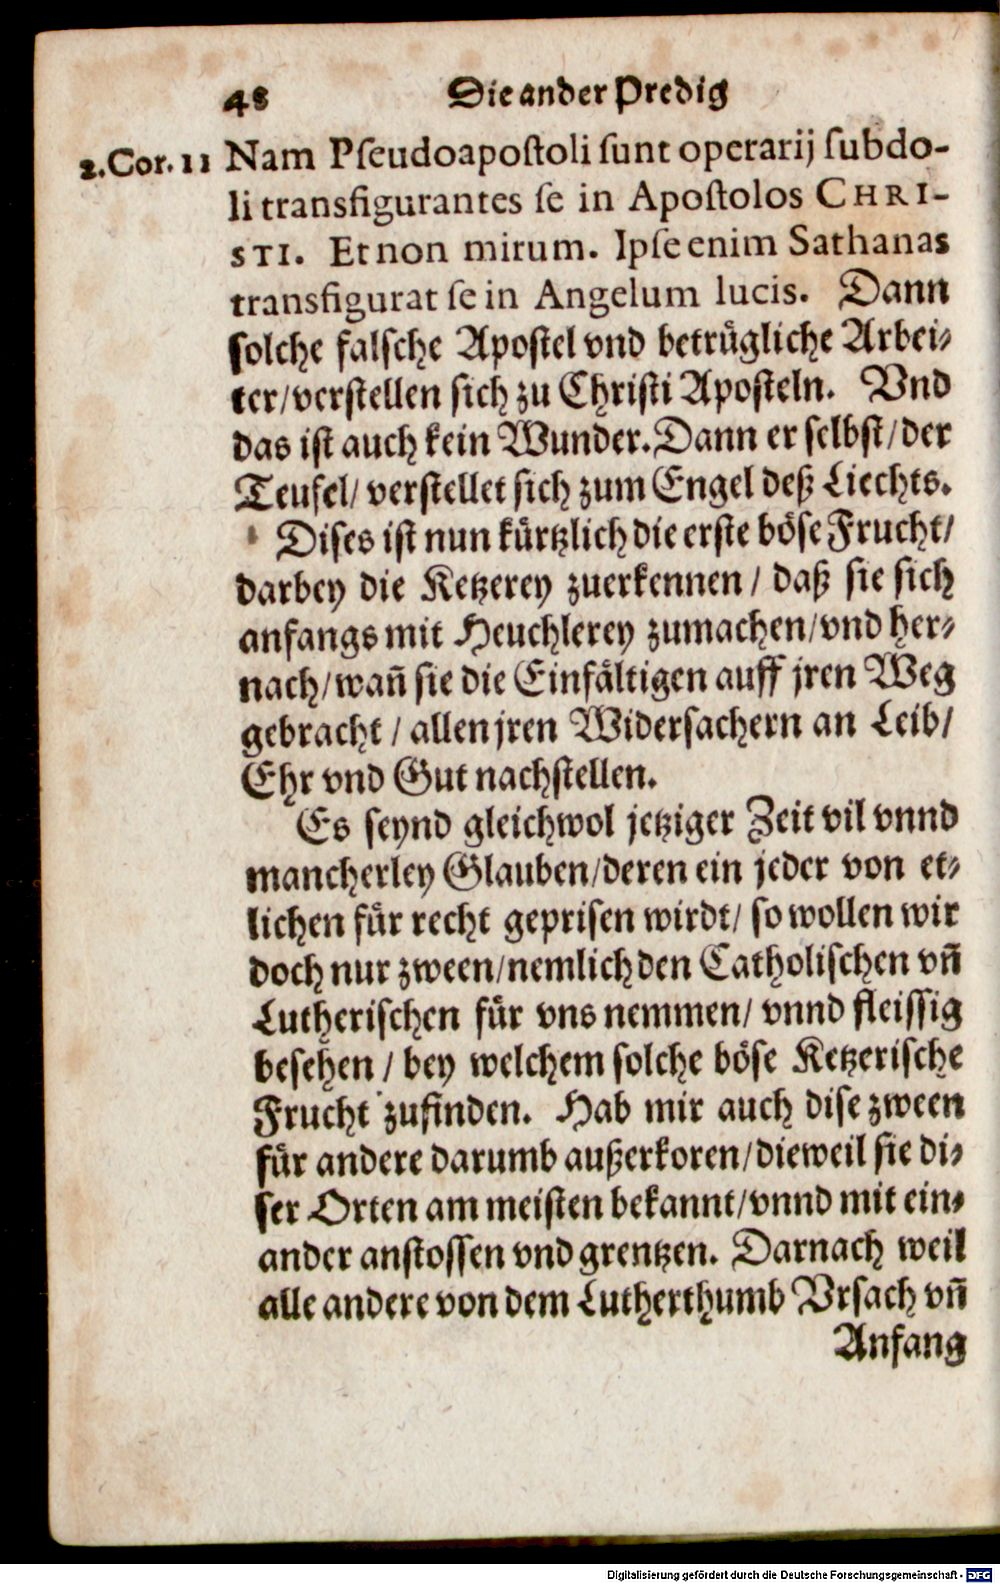 48 Die ander Predig
2.Cor.11 Nam Pſeudoapoſtoli ſunt operarij ſubdo-
li transfigurantes ſe in Apoſtolos CHRI-
STI. Et non mirum. Ipſe enim Sathanas
transfigurat ſe in Angelum lucis. Dann
ſolche falſche Apoſtel vnd betruͤgliche Arbei⸗
ter/verſtellen ſich zu Chriſti Apoſteln. Vnd
das iſt auch kein Wunder. Dann er ſelbſt/der
Teufel/ verſtellet ſich zum Engel deß Liechts.
Diſes iſt nun kuͤrtzlich die erſte boͤſe Frucht/
darbey die Ketzerey zuerkennen/ daß ſie ſich
anfangs mit Heuchlerey zumachen/vnd her⸗
nach/wañ ſie die Einfaͤltigen auff jren Weg
gebracht/ allen jren Widerſachern an Leib/
Ehr vnd Gut nachſtellen.
Es ſeynd gleichwol jetziger Zeit vil vnnd
mancherley Glauben/deren ein jeder von et⸗
lichen fuͤr recht gepriſen wirdt/ ſo wollen wir
doch nur zween/nemlich den Catholiſchen vñ
Lutheriſchen fuͤr vns nemmen/ vnnd fleiſſig
beſehen/ bey welchem ſolche boͤſe Ketzeriſche
Frucht zufinden. Hab mir auch diſe zween
fuͤr andere darumb außerkoren/dieweil ſie di⸗
ſer Orten am meiſten bekannt/vnnd mit ein⸗
ander anſtoſſen vnd grentzen. Darnach weil
alle andere von dem Lutherthumb Vrſach vñ
Anfang
Digitalisierung gefördert durch die Deutsche Forschungsgemeinschaft - DFG